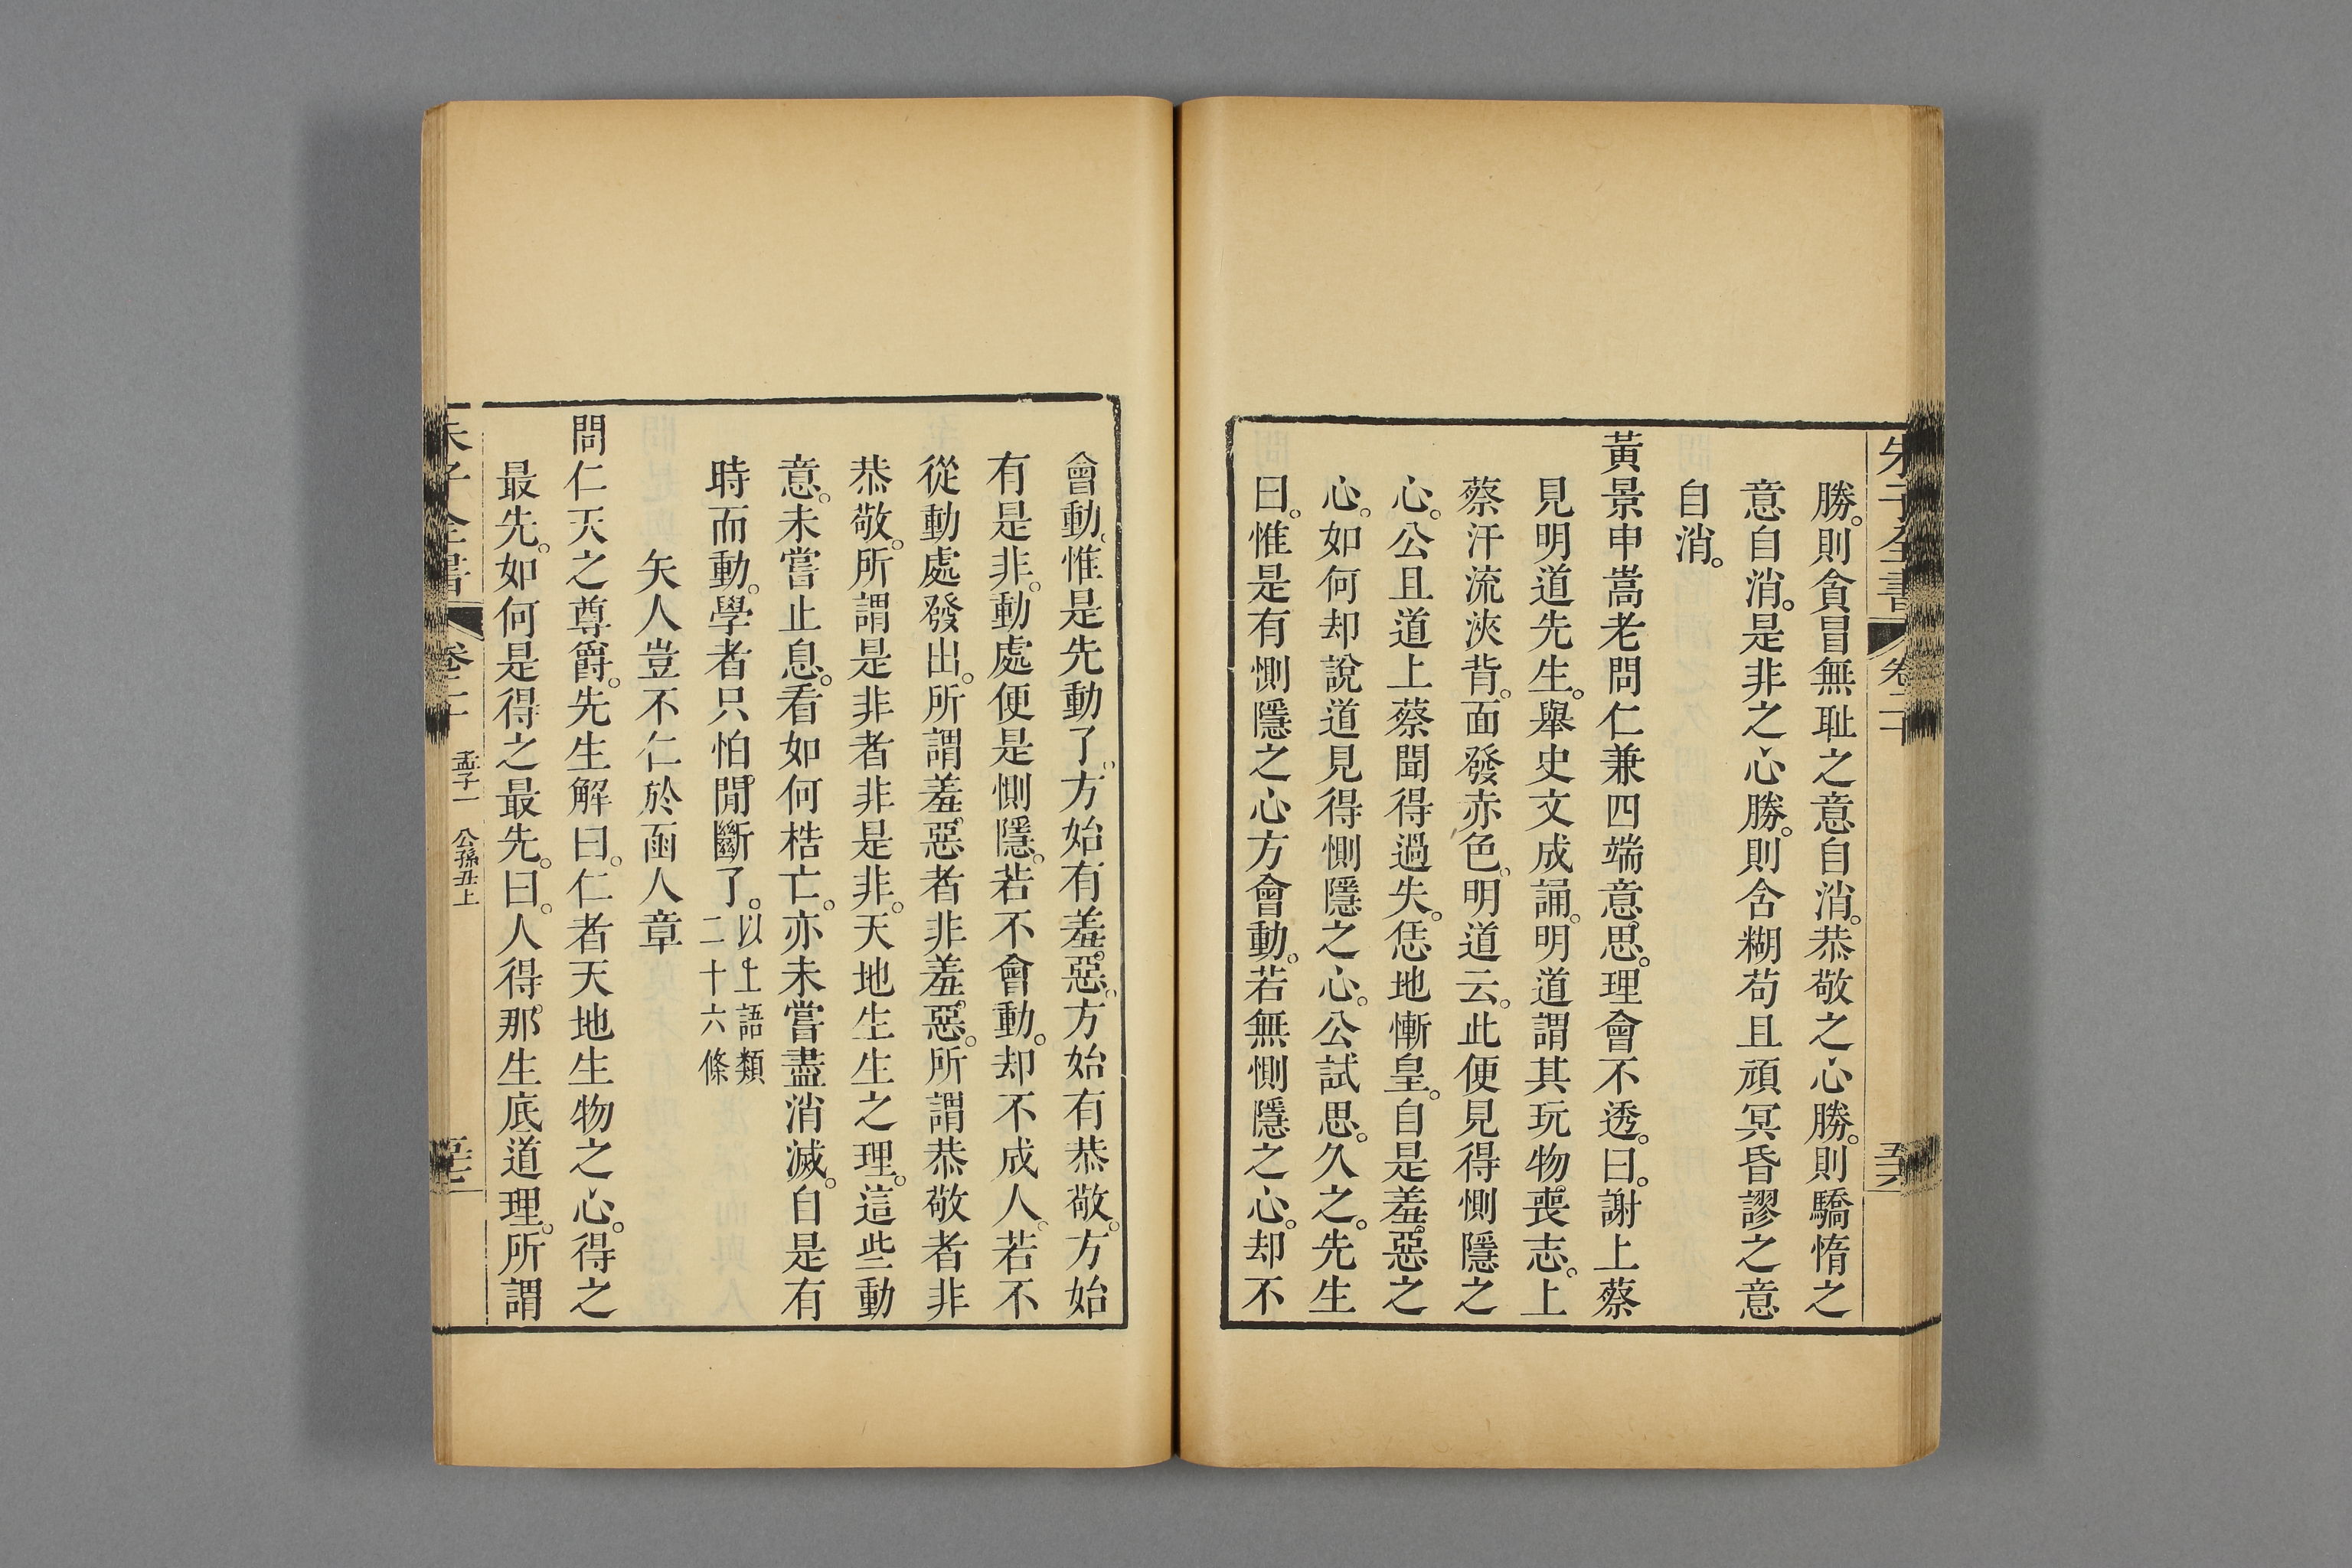 朱子全書 卷二十 五六
勝。則貪冒無耻之意自消。恭敬之心勝。則驕惰之
意自消。是非之心勝。則含糊苟且頑冥昏謬之意
自消。
黃景申嵩老問仁兼四端意。思。理會不透。曰。謝上蔡
見明道先生。舉史文成誦。明道謂其玩物。喪志。上
蔡汗流浹背。面發赤色。明道云。此便見得惻隱之
心。公且道上蔡聞得過失。恁地慚皇。自是羞。惡之
心。如何却說道見得惻隱之心。公試思。久之。先生
曰。惟是有惻隱之心方會動。若無惻隱之心。却不
會動。惟是先動了。方始有羞。惡。方始有恭敬。方始
有是非。動處便是惻隱。若不會動。却不成人。若不
從動處發出。所謂羞。惡者非羞。惡。所謂恭敬者非
恭敬。所謂是非者非是非。天地生生之理。這些動
意。未嘗止息。看如何梏亡。亦未嘗盡消滅。自是有
時而動。學者只怕。閒斷了。以上語類
二十六條
矢人豈不仁於函人章
問仁天之尊爵。先生解曰。仁者天地生物之心。得之
最先。如何是得之最先。曰。人得。那。生底道理。所謂
朱子全書 卷二十 孟子一 公孫丑上